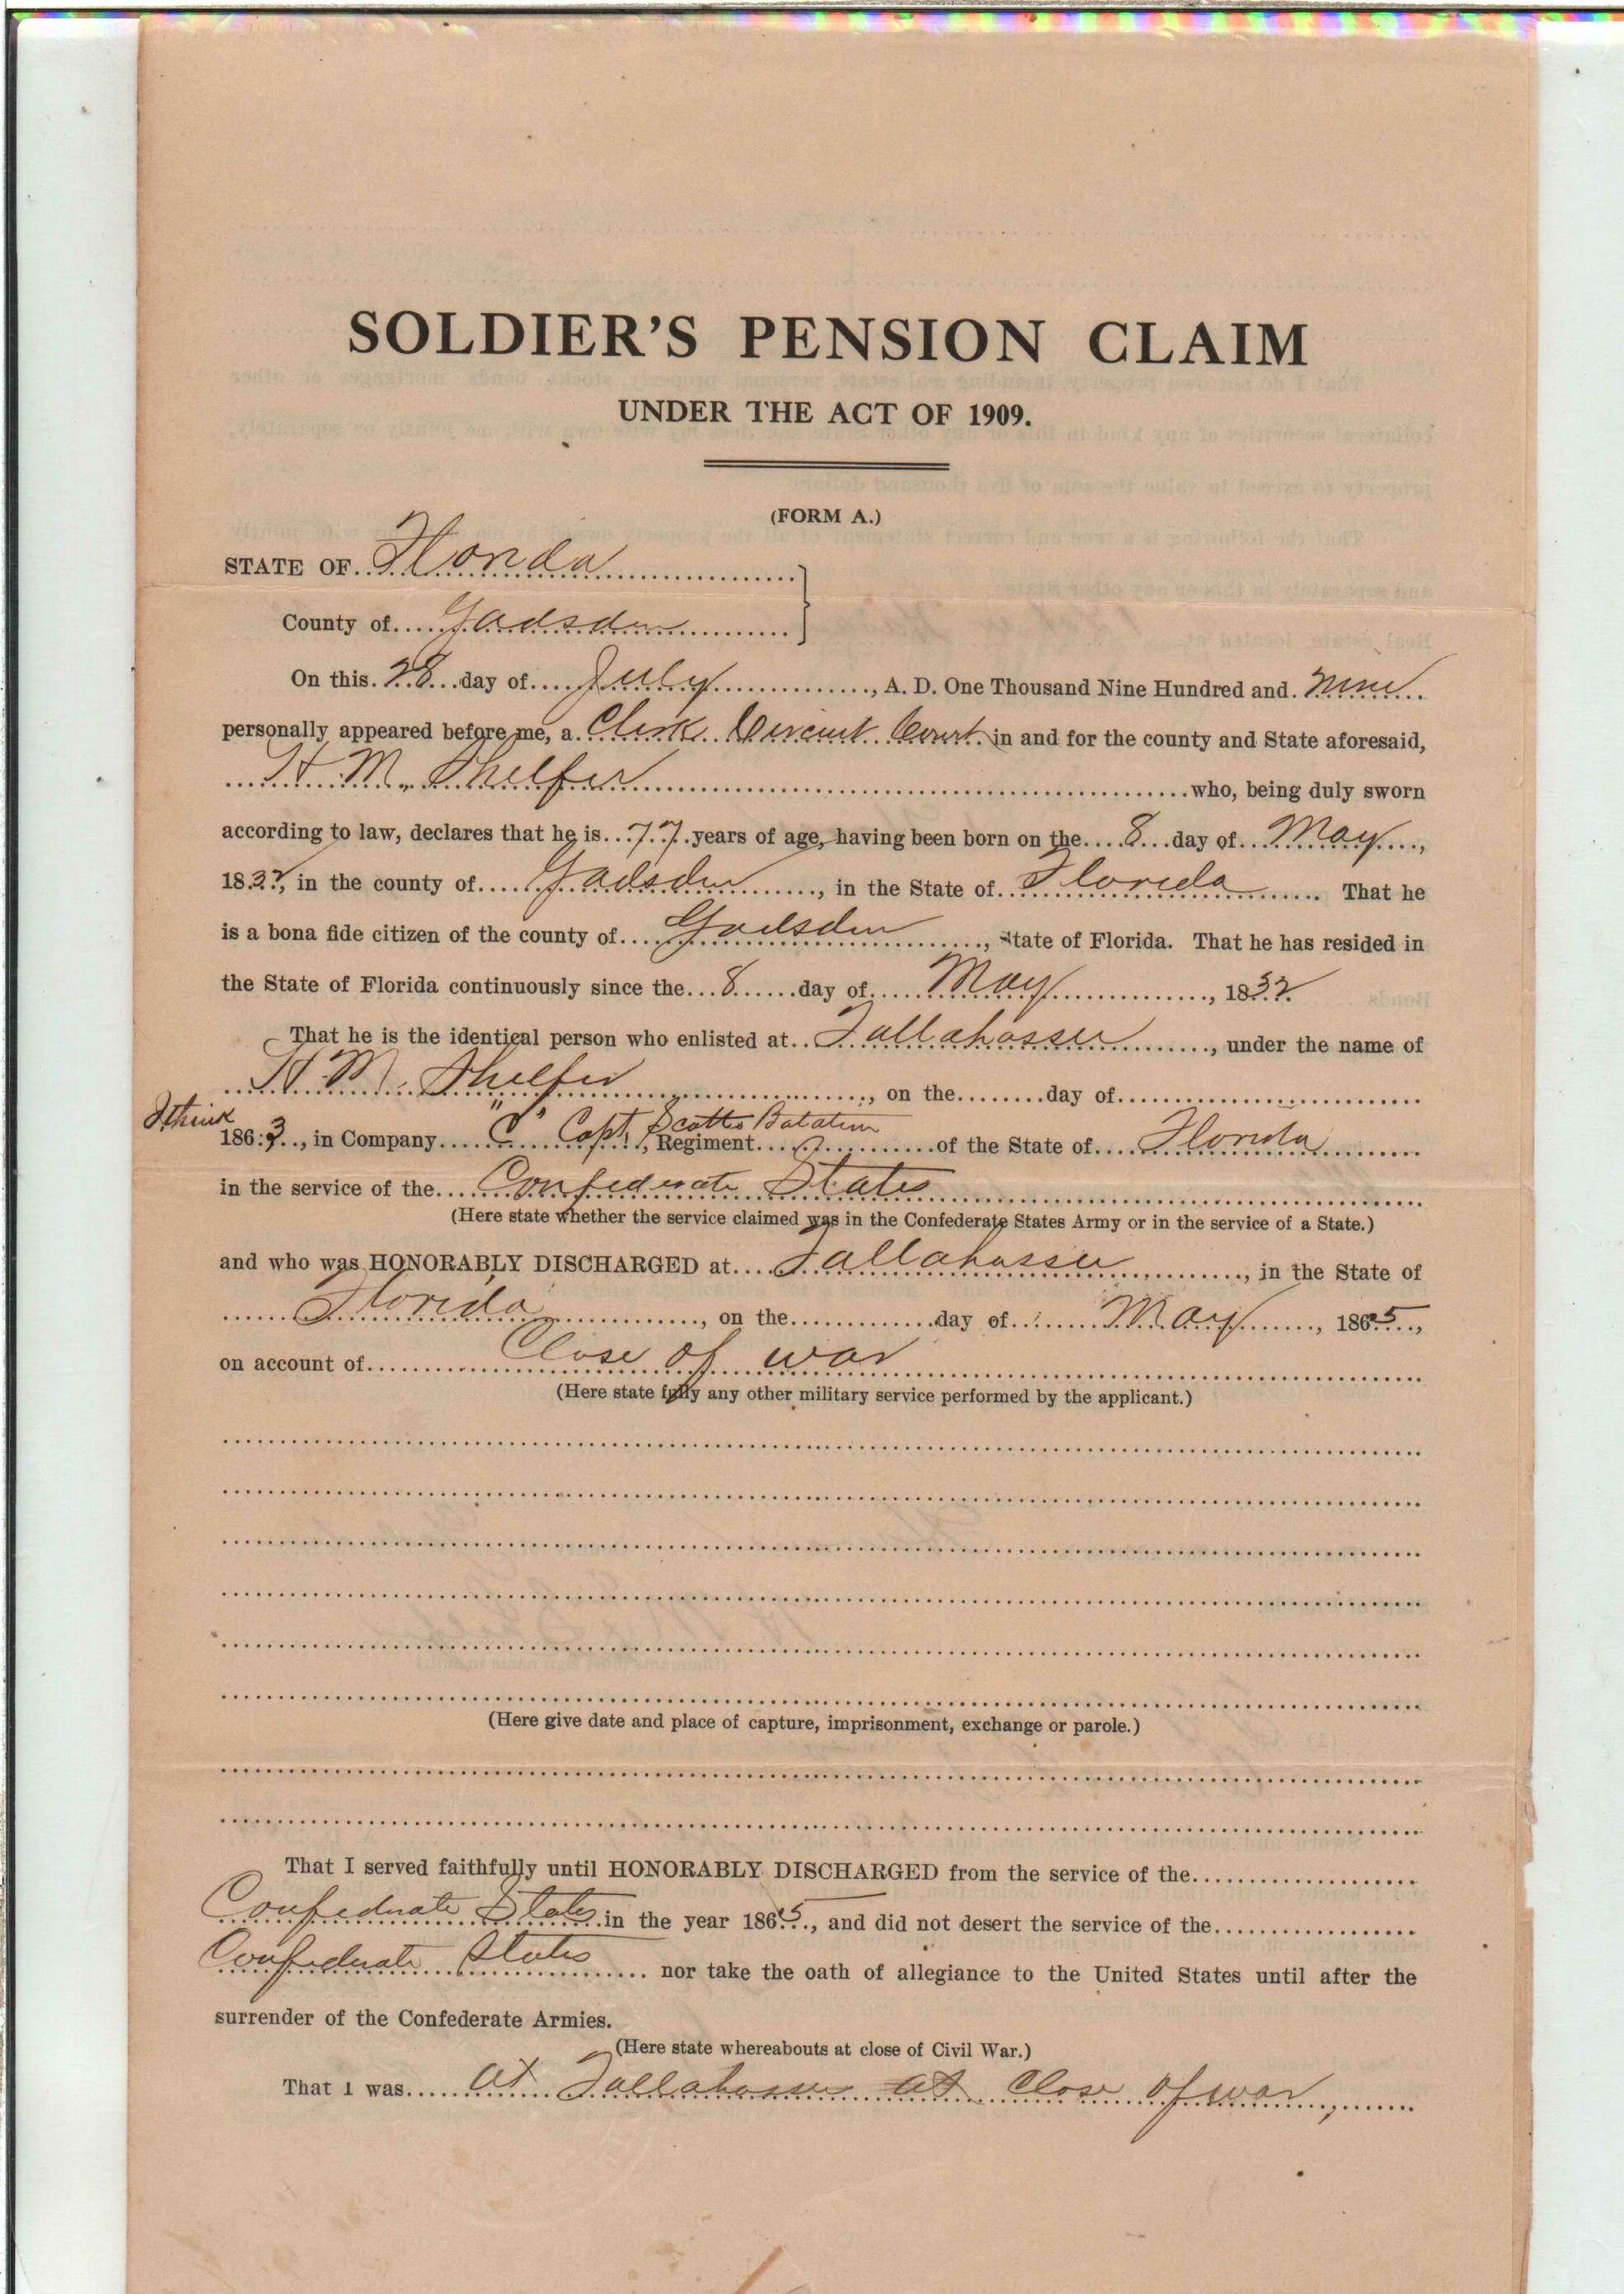 SOLDIER'S PENSION CLAIM
UNDER THE ACT OF 1909.
(FORM A.)
STATE OF Florida
County of Gadsden
On this 28 day of July, A. D. One Thousand Nine Hundred and nine
personally appeared before me, a Clerk Circuit Court in and for the county and State aforesaid,
H. M. Shelfer who, being duly sworn
according to law, declares that he is 77 years of age, having been born on the 8 day of May,
1832, in the county of Gadsden, in the State of Florida That he
is a bona fide citizen of the county of Gadsden, State of Florida. That he has resided in
the State of Florida continuously since the 8 day of May, 1832
That he is the identical person who enlisted at Tallahassee, under the name of
H. M. Shelfer, on the day of
I think
1863, in Company "C" Capt. Scotts Batalion, Regiment of the State of Florida
in the service of the Confederate States
(Here state whether the service claimed was in the Confederate States Army or in the service of a State.)
and who was HONORABLY DISCHARGED at Tallahassee, in the State of
Florida, on the day of May, 1865,
on account of Close of war
(Here state fully any other military service performed by the applicant.)
(Here give date and place of capture, imprisonment, exchange or parole.)
That I served faithfully until HONORABLY DISCHARGED from the service of the
Confederate States in the year 1865, and did not desert the service of the
Confederate States nor take the oath of allegiance to the United States until after the
surrender of the Confederate Armies.
(Here state whereabouts at close of Civil War.)
That I was at Tallahassee at Close of war,